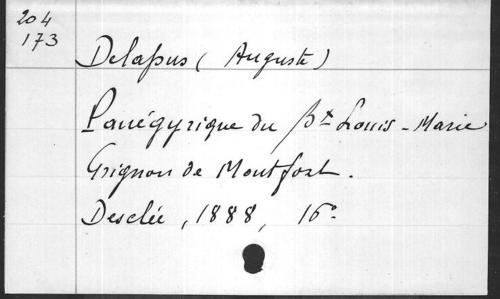 204
173
Delapus (Auguste)
Panégyrique du Bt Louis-Marie
Grignon de Montfort.
Desclée, 1888, 16°